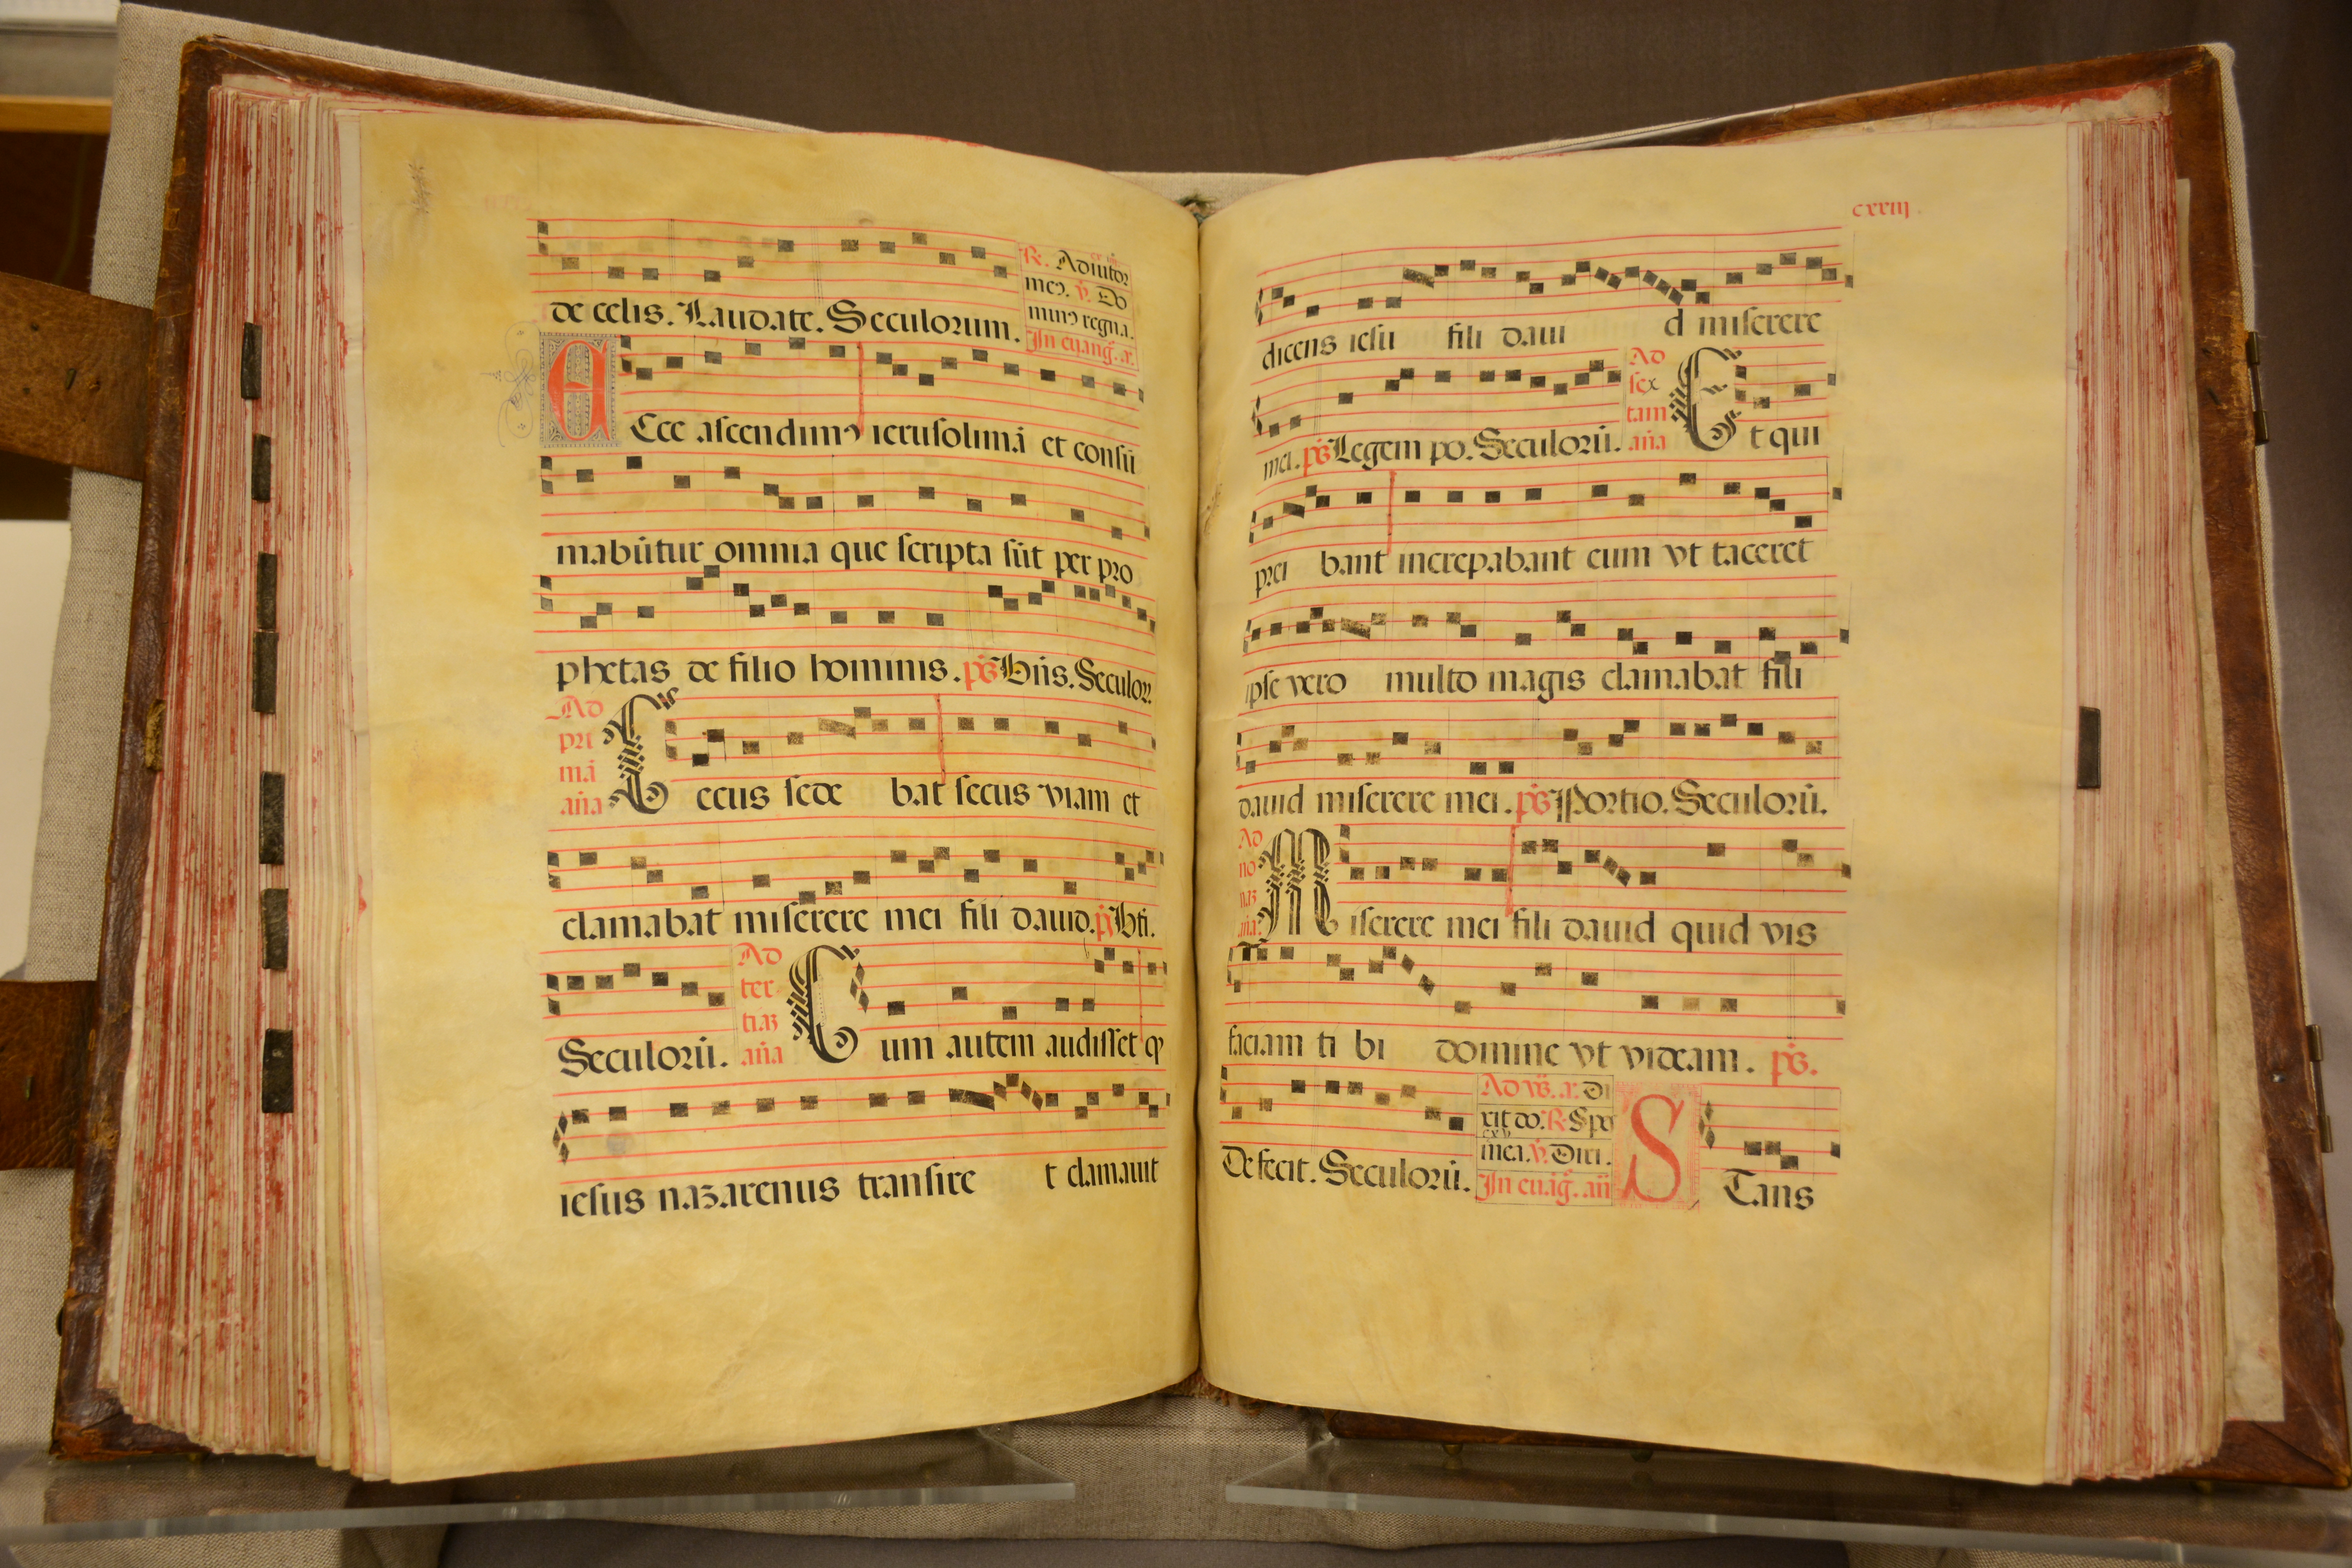 de celis. Laudate. Seculorum.
R. Adiutor
meꝰ. v. Do
minꝰ regna.
In euāg. a.
Ecce ascendimꝰ ierusolimā et consū
mabūtur omnia que scripta sūt per pro
phetas de filio hominis. ps Btīs. Seculor.
Ad
pri
mā
aña
Cecus sede bat secus viam et
clamabat miserere mei fili dauid. ps Bti.
Seculorū.
Ad
ter
tiaʒ
aña
Cum autem audisset ꝙ
iesus nazarenus transire t clamauit
cxxiij.
dicens iesu fili daui d miserere
mei. ps Legem po. Seculorū.
Ad
sex
tam
aña
Et qui
prei bant increpabant eum vt taceret
ipse vero multo magis clamabat fili
dauid miserere mei. ps Portio. Seculorū.
Ad
no
naʒ
aña.
Miserere mei fili dauid quid vis
faciam ti bi domine vt videam. ps.
Defecit. Seculorū.
Ad vs. a. Di
xit do. R. Spe
mea. v. Diri.
In euāg. añ
STans